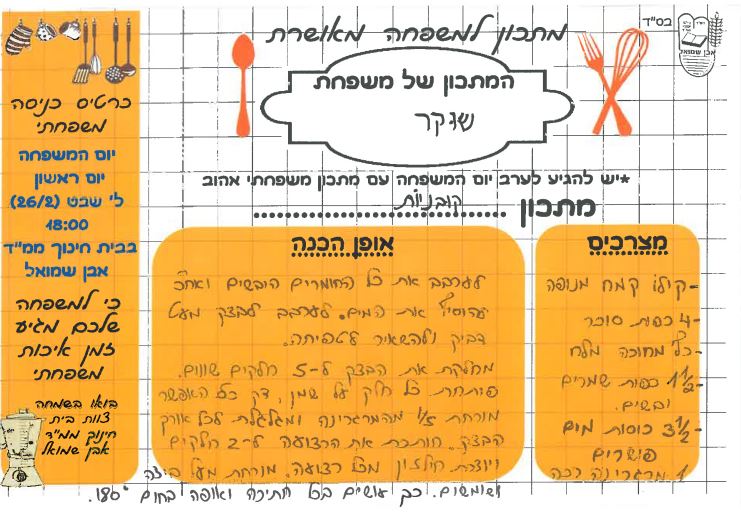 בס"ד
אבן שמואל
מתכון למשפחה מאושרת
המתכון של משפחת
שנקר
*יש להגיע לערב יום המשפחה עם מתכון משפחתי אהוב
מתכון קובניות
כרטיס כניסה
משפחתי
יום המשפחה
יום ראשון
ל' שבט (26/2)
18:00
בבית חינוך ממ"ד
אבן שמואל
כי למשפחה
שלכם מגיע
זמן איכות
משפחתי
בואו בשמחה
צוות בית
חינוך ממ"ד
אבן שמואל
מצרכים
-קילו קמח מנופה
-4 כפות סוכר
-כף מחוקה מלח
-1 1/2 כפות שמרים
יבשים.
-3 1/2 כוסות מים
פושרים
1 מרגרינה רכה
אופן הכנה
לערבב את כל החומרים היבשים ואח"כ
להוסיף את המים. לערבב לבצק מעט
דביק ולהשאיר לתפיחה.
מחלקת את הבצק ל-5 חלקים שווים.
פותחת כל חלק על שמן, דק ככל האפשר
מורחת 1/5 מהמרגרינה ומגלגלת לכל אורק
הבצק. חותכת את הרצועה ל-2 חלקים
ויוצרת חילזון מכל רצועה. מורחת מעל ביצה
ושומשום. כך עושים בכל חתיכה ואופה בחום 180°.